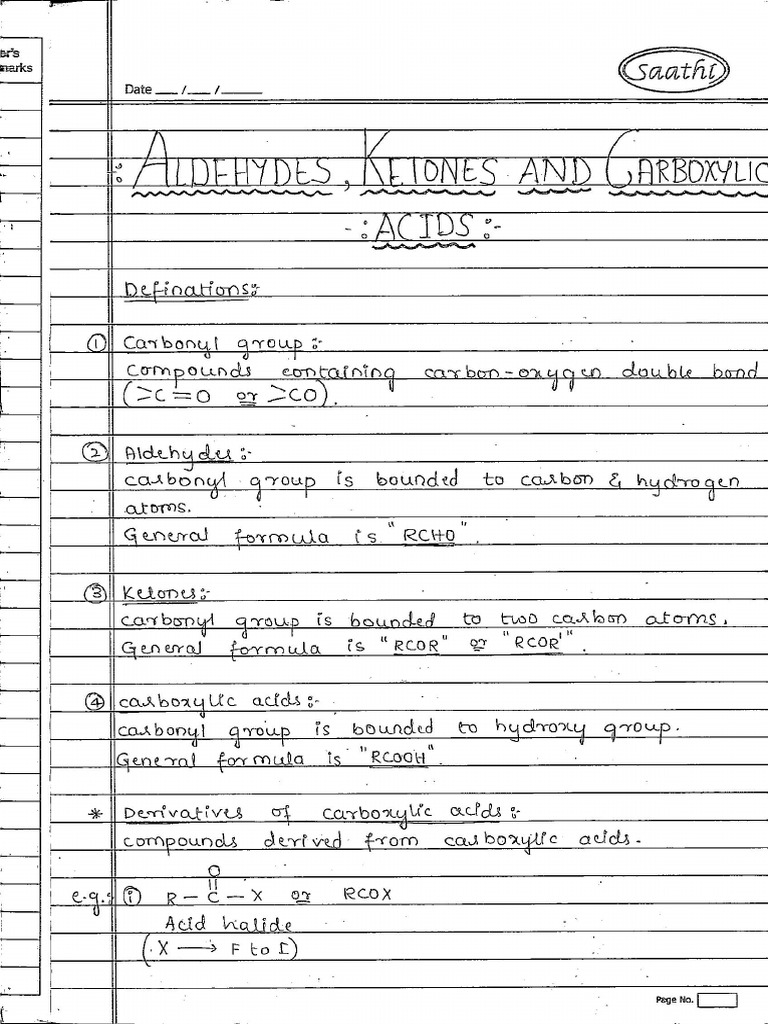 er's
marks
Saathi
Date ___ /___ /_____
: ALDEHYDES, KETONES AND CARBOXYLIC
-: ACIDS :-
Definations:-
① Carbonyl group :-
compounds containing carbon-oxygen double bond
(>C=O or >CO).
② Aldehydes :-
carbonyl group is bounded to carbon & hydrogen
atoms.
General formula is "RCHO".
③ Ketones:-
carbonyl group is bounded to two carbon atoms.
General formula is "RCOR" or "RCOR'".
④ carboxylic acids:-
carbonyl group is bounded to hydroxy group.
General formula is "RCOOH".
* Derivatives of carboxylic acids:-
compounds derived from carboxylic acids.
O
e.g.: ⓘ R – C – X or RCOX
Acid halide
(X ⟶ F to I)
Page No.